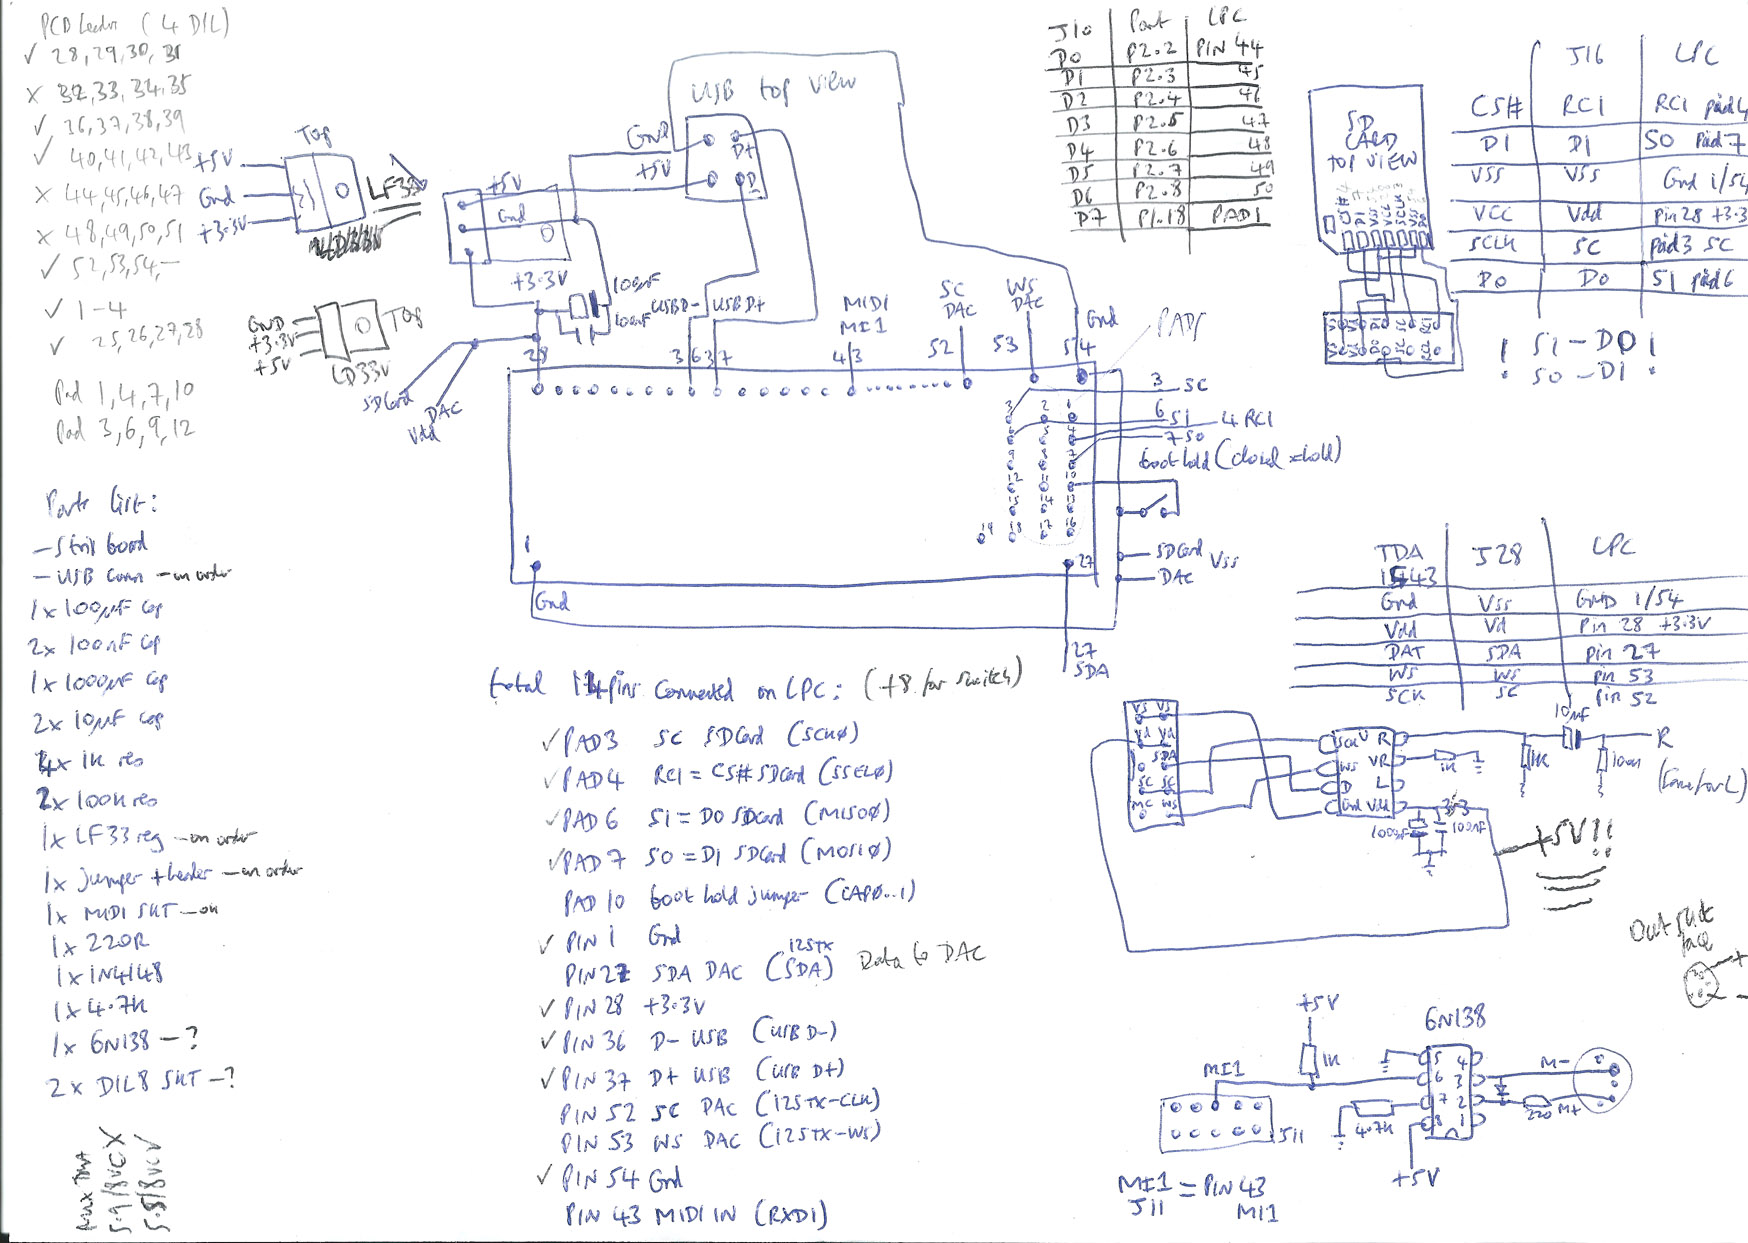 PCD Leader ( 4 DIL)
✓ 28,29,30,31
x 32,33,34,35
✓ 36,37,38,39
✓ 40,41,42,43
x 44,45,46,47
x 48,49,50,51
✓ 52,53,54,—
✓ 1-4
✓ 25,26,27,28
Pad 1,4,7,10
Pad 3,6,9,12
Top
+5V
Gnd
+3.3V
LF33
GND
+3.3V
+5V
Top
LD33V
Parts list:
- Strip board
- USB Conn - on order
1x 100µF cap
2x 100nF cap
1x 1000µF cap
2x 10µF cap
4x 1K res
2x 100K res
1x LF33 reg - on order
1x jumper + header - on order
1x MIDI SKT - on
1x 220R
1x 1N4148
1x 4.7K
1x 6N138 - ?
2x DIL8 SKT - ?
USB top view
Gnd
+5V
D+
D-
+5V
Gnd
+3.3V
100µF
100nF
USB D-
USB D+
MIDI
MI1
SC
DAC
WS
DAC
Gnd
PADS
28
36
37
43
52
53
54
SDCard
DAC
Vdd
3 2 1
3 SC
6 SI
4 RCI
7 SO
boot hold (closed = hold)
19 18 17 16
SDCard
Vss
DAC
1
27
Gnd
27
SDA
total 14 pins connected on LPC: (+8 for switch)
✓ PAD3 SC SDCard (SCK0)
✓ PAD4 RCI = CS# SDCard (SSEL0)
✓ PAD 6 SI = DO SDCard (MISO0)
✓ PAD 7 SO = DI SDCard (MOSI0)
PAD 10 boot hold jumper (CAP0..1)
✓ PIN 1 Gnd
PIN 27 SDA DAC (I2STX SDA) Data to DAC
✓ PIN 28 +3.3V
✓ PIN 36 D- USB (USB D-)
✓ PIN 37 D+ USB (USB D+)
PIN 52 SC DAC (I2STX-CLK)
PIN 53 WS DAC (I2STX-WS)
✓ PIN 54 Gnd
PIN 43 MIDI IN (RXD1)
J10 Port LPC
D0 P2.2 PIN 44
D1 P2.3 45
D2 P2.4 46
D3 P2.5 47
D4 P2.6 48
D5 P2.7 49
D6 P2.8 50
D7 P1.18 PAD1
SD
CARD
TOP VIEW
J16 LPC
CS# RCI RCI pad4
DI DI SO pad 7
VSS VSS Gnd 1/54
VCC Vdd pin 28 +3.3
SCLK SC pad3 SC
DO DO SI pad 6
! SI - DO !
! SO - DI !
TDA
1543 J28 LPC
Gnd Vss GND 1/54
Vdd Vd Pin 28 +3.3V
DAT SDA pin 27
WS WS pin 53
SCK SC Pin 52
VS VS
Vd Vd
SDA
SC SC
MC WS
SCK
WS
D
Gnd
R
VR
L
Vdd
1K
1K
10µF
100K
R
(Same for L)
3.3
100µF
100nF
+5V!!
Out skt
face
+
-
+5V
1K
MI1
J11
6N138
5 4
6 3
7 2
8 1
4.7K
+5V
220
M-
M+
MI1 = PIN 43
J11 MI1